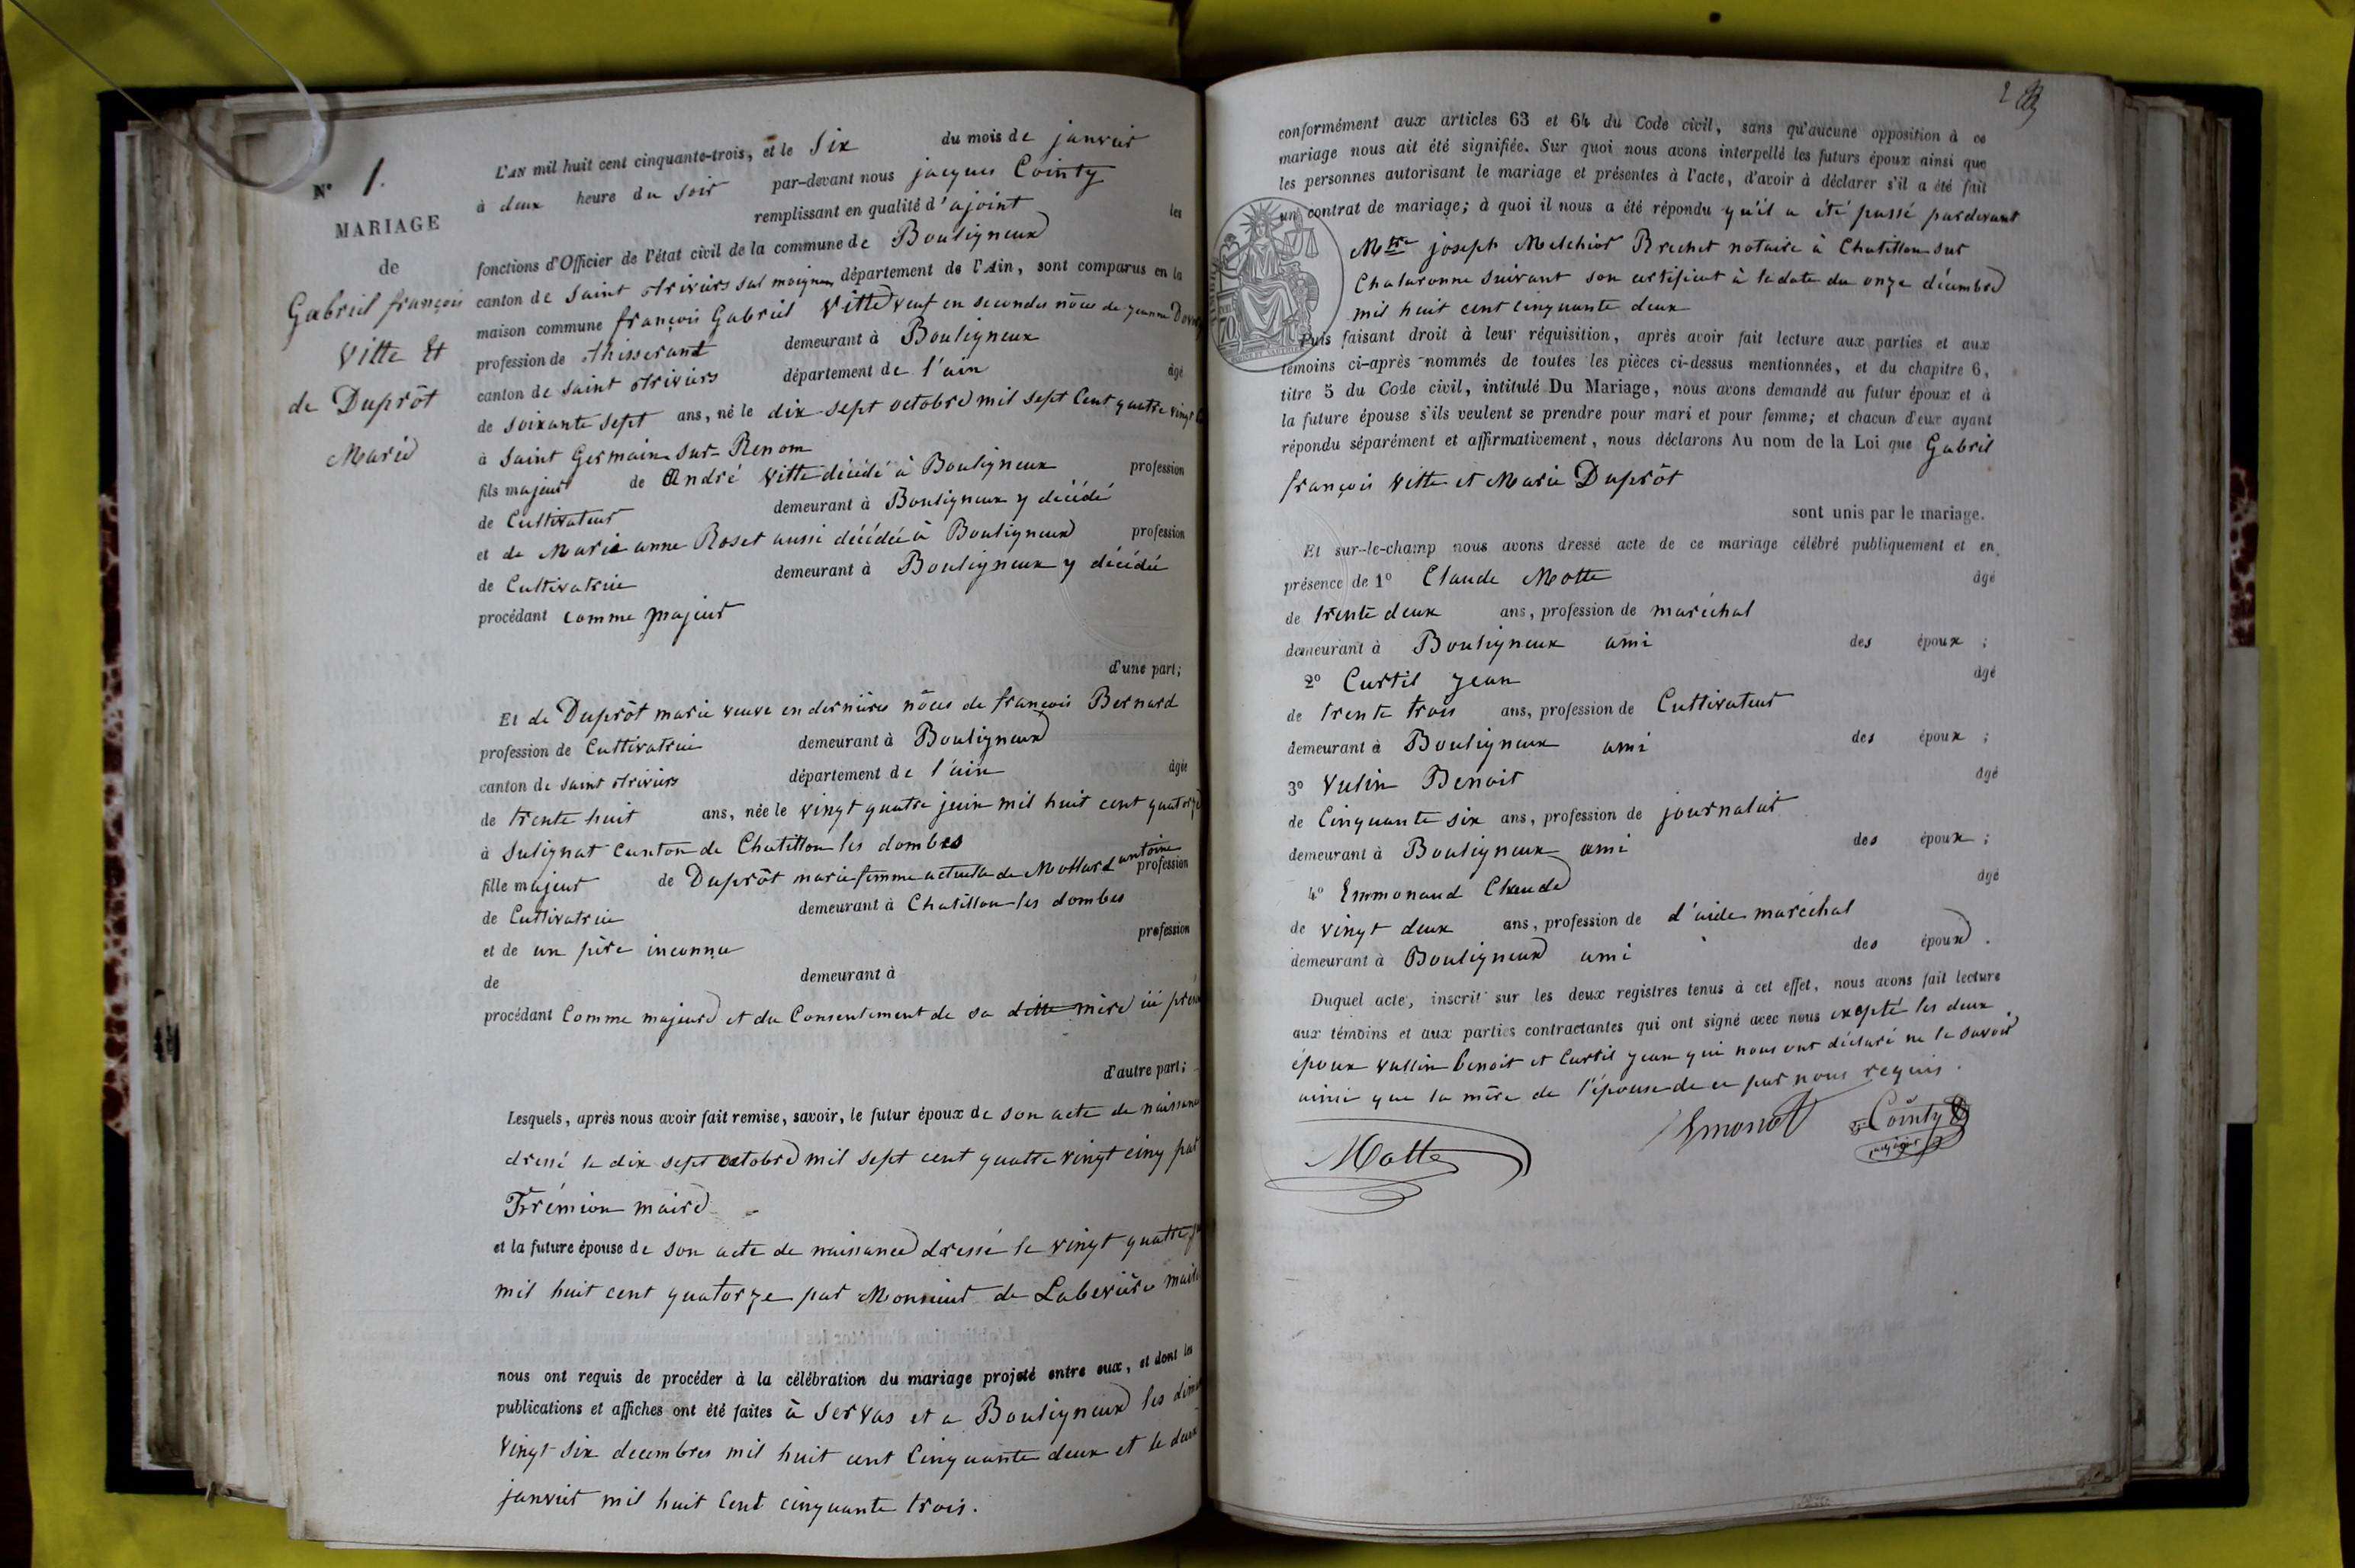 N° 1.
MARIAGE
de
Gabriel françois
Vitte Et
de Duprôt
Marie
L'AN mil huit cent cinquante-trois, et le Six du mois de janvier
à deux heure du soir par-devant nous jacques Cointy
remplissant en qualité d'ajoint les
fonctions d'Officier de l'état civil de la commune de Bouligneux
canton de Saint trivier sur moignans département de l'Ain, sont comparus en la
maison commune françois Gabriel Vitte veuf en secondes nôces de jeanne
profession de thisserant demeurant à Bouligneux
canton de saint triviers département de l'ain âgé
de soixante sept ans, né le dix sept octobre mil sept Cent quatre vingt
à Saint Germain-sur-Renom
fils majeur de André Vitte décédé à Bouligneux profession
de Cultivateur demeurant à Bouligneux y décédé
et de Marie anne Roset aussi décédée à Bouligneux profession
de Cultivatrice demeurant à Bouligneux y décédée
procédant comme majeur
d'une part;
Et de Duprôt marie veuve en dernières nôces de françois Bernard
profession de Cultivatrice demeurant à Bouligneux
canton de saint triviers département de l'ain âgée
de trente huit ans, née le vingt quatre juin mil huit cent quatorze
à Sulignat canton de Chatillon les dombes
fille majeur de Duprôt marie femme actuelle de Mollard antoine profession
de Cultivatrice demeurant à Chatillon les dombes
et de un père inconnu profession
de demeurant à
procédant Comme majeure et du Consentement de sa ditte mère ici
d'autre part;
Lesquels, après nous avoir fait remise, savoir, le futur époux de son acte de naissance
dressé le dix sept octobre mil sept cent quatre vingt cinq par
Frémion maire
et la future épouse de son acte de naissance dressé le vingt quatre
mil huit cent quatorze par Monsieur de Labevière maire
nous ont requis de procéder à la célébration du mariage projeté entre eux, et dont les
publications et affiches ont été faites à Servas et a Bouligneux les
Vingt six decembres mil huit cent Cinquante deux et le deux
janvier mil huit Cent cinquante trois.
2
conformément aux articles 63 et 64 du Code civil, sans qu'aucune opposition à ce
mariage nous ait été signifiée. Sur quoi nous avons interpellé les futurs époux ainsi que
les personnes autorisant le mariage et présentes à l'acte, d'avoir à déclarer s'il a été fait
un contrat de mariage; à quoi il nous a été répondu qu'il a été passé pardevant
Mtre joseph Melchior Brechet notaire à Chatillon sur
Chalaronne suivant son certificat à la date du onze décembre
mil huit cent cinquante deux
Puis faisant droit à leur réquisition, après avoir fait lecture aux parties et aux
témoins ci-après nommés de toutes les pièces ci-dessus mentionnées, et du chapitre 6,
titre 5 du Code civil, intitulé Du Mariage, nous avons demandé au futur époux et à
la future épouse s'ils veulent se prendre pour mari et pour femme; et chacun d'eux ayant
répondu séparément et affirmativement, nous déclarons Au nom de la Loi que Gabriel
françois Vitte et Marie Duprôt
sont unis par le mariage.
Et sur-le-champ nous avons dressé acte de ce mariage célébré publiquement et en
présence de 1° Claude Motte âgé
de trente deux ans, profession de maréchal
demeurant à Bouligneux ami des époux ;
2° Curtil jean âgé
de trente trois ans, profession de Cultivateur
demeurant à Bouligneux ami des époux ;
3° Vulin Benoit âgé
de Cinquante six ans, profession de journalier
demeurant à Bouligneux ami des époux ;
4° Emmonaud Claude âgé
de vingt deux ans, profession de d'aide maréchal
demeurant à Bouligneux ami des époux .
Duquel acte, inscrit sur les deux registres tenus à cet effet, nous avons fait lecture
aux témoins et aux parties contractantes qui ont signé avec nous excepté les deux
époux vullin benoit et Curtil jean qui nous ont déclaré ne le savoir
ainsi que la mère de l'épouse de ce par nous requis.
Motte Emonot Cointy